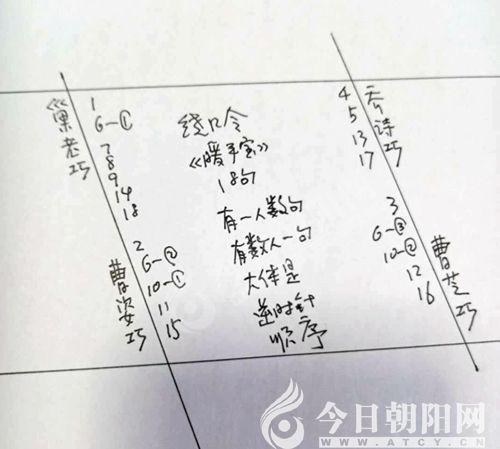 巢老巧
1
6-①
7
8
9
14
18
曹姿巧
2
6-②
10-①
11
15
绕口令
《暖手宝》
18句
有一人数句
有数人一句
大体是
逆时针
顺序
乔诗巧
4
5
13
17
曹芝巧
3
6-③
10-②
12
16
今日朝阳网
WWW.ATCY.CN